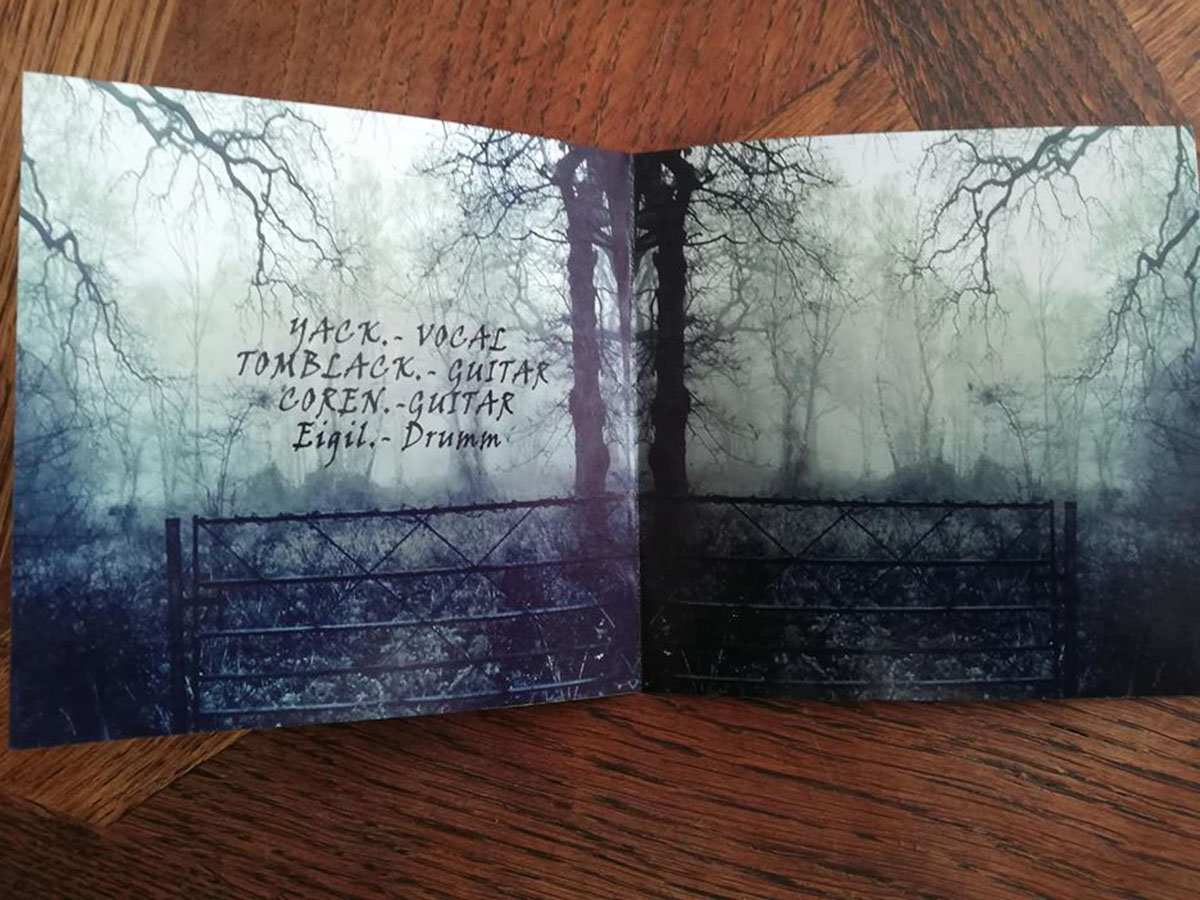 YACK.- VOCAL
TOMBLACK.- GUITAR
COREN.-GUITAR
Eigil.- Drumm